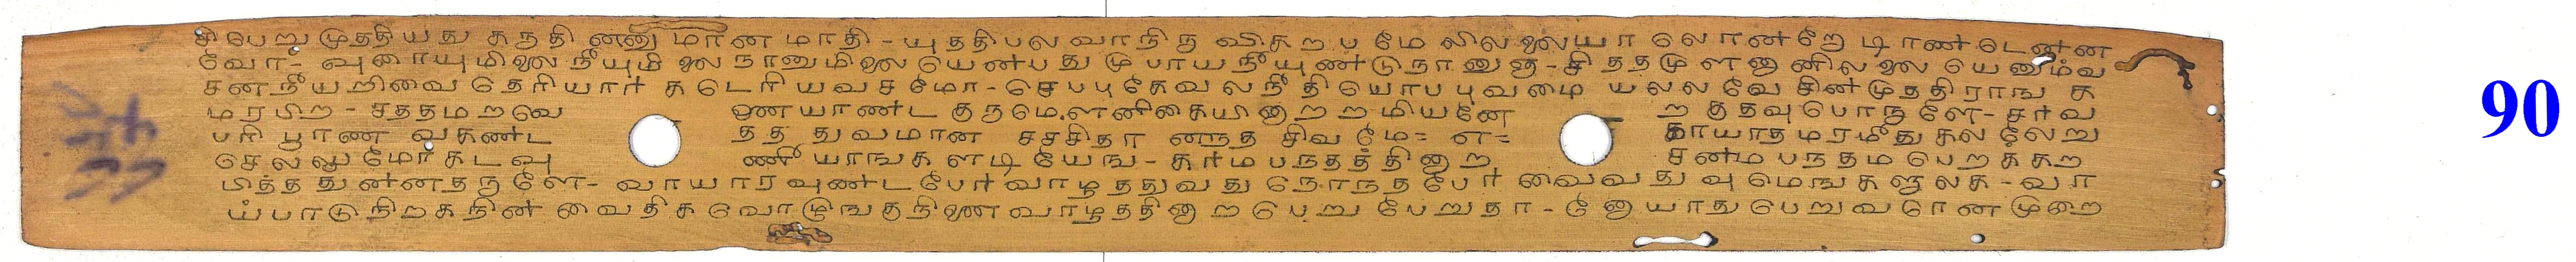 சிபெறுமுததியது கநதினனுமான மாதி - யுததிபல வாநித விகறப மேலிலலையா லொனறே டிரணடெனன
வோ - வுரையுமிலலை நீயுமிலலை நானுமிலலை யெனபது முபாயநீயுணடு நானுஞ - சிததமு ளானுனிலலை யெனுமவ
சனநீயறிவை தெரியார் க டெரியவசமோ - செபபுகேவலநீ தியொபபுவமை யலலவே சினமுததிராஙக
மரபிற - சததமறவே ணையாணட குருமெளனிகையினாறறமியனே றகுதவுபொருளே - சர்வ
பரி பூரண வகணட தத துவமான சசசிதா னநத சிவமே = எ = காயாதமரமீது கலலேறு
செலலுமோ கடவு ணீ யாஙகளடியேஙக - கர்மபநதததினாற சனமபநதம பெறககற
பித்த துனனதருளே - வாயாரவுணடபேர் வாழததுவது நொநதபேர் வைவதுவு மெஙகளுலக - வா
ய்பாடு நிறக நின வைதிக வொழுஙகு நிணை வாழததினாற பெறு பேறுதா - னேயாது பெறுவரோன முறை
90